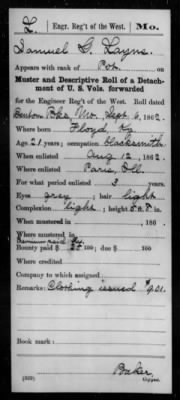 L. Engr. Reg't of the West. Mo.
Samuel G. Layne
Appears with rank of Pvt. on
Muster and Descriptive Roll of a Detach-
ment of U. S. Vols. forwarded
for the Engineer Reg't of the West. Roll dated
Benton Bks, Mo. Sept. 6, 1862.
Where born Floyd, Ky
Age 21 years; occupation blacksmith
When enlisted Aug 12, 1862.
Where enlisted Paris, Ill.
For what period enlisted 3 years.
Eyes grey; hair light
Complexion light; height 5 ft. 8 in.
When mustered in , 186 .
Where mustered in
Bounty paid $ 100; due $ 100
Where credited
Company to which assigned
Remarks: Clothing issued $9.01.
Book mark:
Baker,
(339) Copyist.